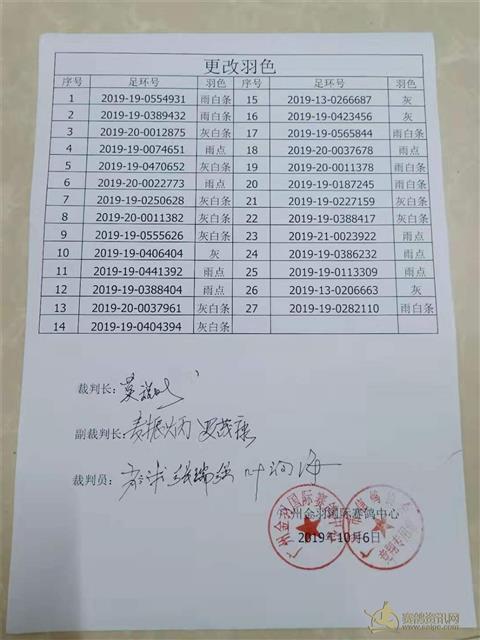 更改羽色
序号 足环号 羽色 序号 足环号 羽色
1 2019-19-0554931 雨白条 15 2019-13-0266687 灰
2 2019-19-0389432 雨白条 16 2019-19-0423456 灰
3 2019-20-0012875 灰白条 17 2019-19-0565844 雨白条
4 2019-19-0074651 雨点 18 2019-20-0037678 雨点
5 2019-19-0470652 灰白条 19 2019-20-0011378 雨白条
6 2019-20-0022773 雨点 20 2019-19-0187245 雨白条
7 2019-19-0250628 灰白条 21 2019-19-0227159 灰白条
8 2019-20-0011382 灰白条 22 2019-19-0388417 灰白条
9 2019-19-0555626 灰白条 23 2019-21-0023922 雨点
10 2019-19-0406404 灰 24 2019-19-0386232 雨点
11 2019-19-0441392 雨点 25 2019-19-0113309 雨点
12 2019-19-0388404 雨点 26 2019-13-0206663 灰
13 2019-20-0037961 灰白条 27 2019-19-0282110 雨白条
14 2019-19-0404394 灰白条
裁判长:
副裁判长:
裁判员:
广州金羽国际赛鸽中心
2019年10月6日
广州金羽国际赛鸽中心
赛鸽资讯网
www.saige.com